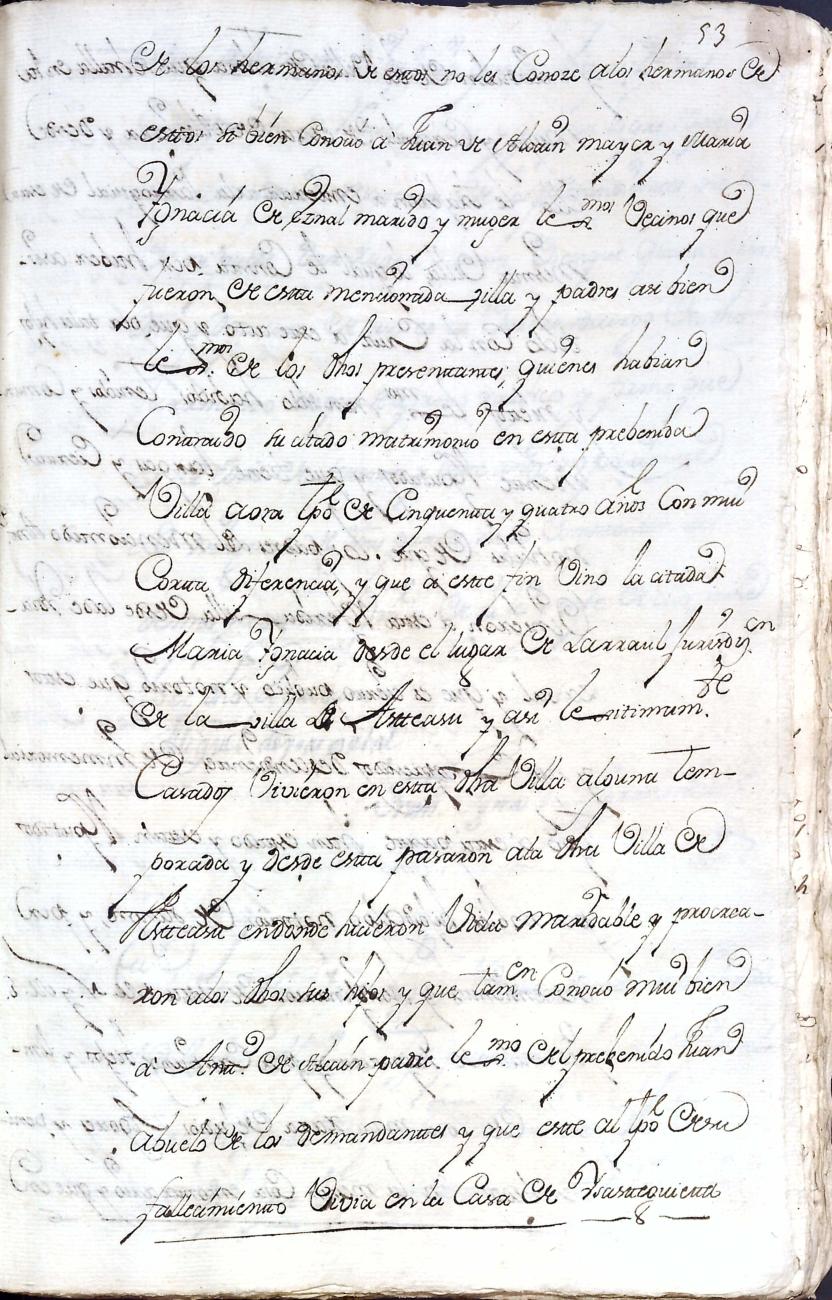 53
de los hermanos de estos no les Conoze a los hermanos de
esttos si bien Conocio a Juan de Alcain mayor y Maria
Ygnacia de Eznal marido y muger lexmos Vecinos que
fueron de estta mencionada villa y padres asi bien
lexmos de los dhos presenttantes, quienes habian
Contraido su citado matrimonio en estta prebenida
Villa aora tpo de Cinquentta y quatro años con mui
Cortta diferencia, y que a estte fin Vino la citada
Maria Ygnacia desde el lugar de Larraul Jurisdicn
de la villa de Astteasu y asi lexitimamte
Casados Vivieron en estta dha Villa alguna tem-
porada y desde estta pasaron a la dha Villa de
Astteasu en donde hicieron Vida maridable y procrea-
ron a los dhos sus hijos y que tamen Conocio mui bien
a Antto de Alcain padre lexmo del prebenido Juan
Abuelo de los demandanttes y que estte al tpo de su
fallecimientto Vivia en la Casa de Ysasttiguietta